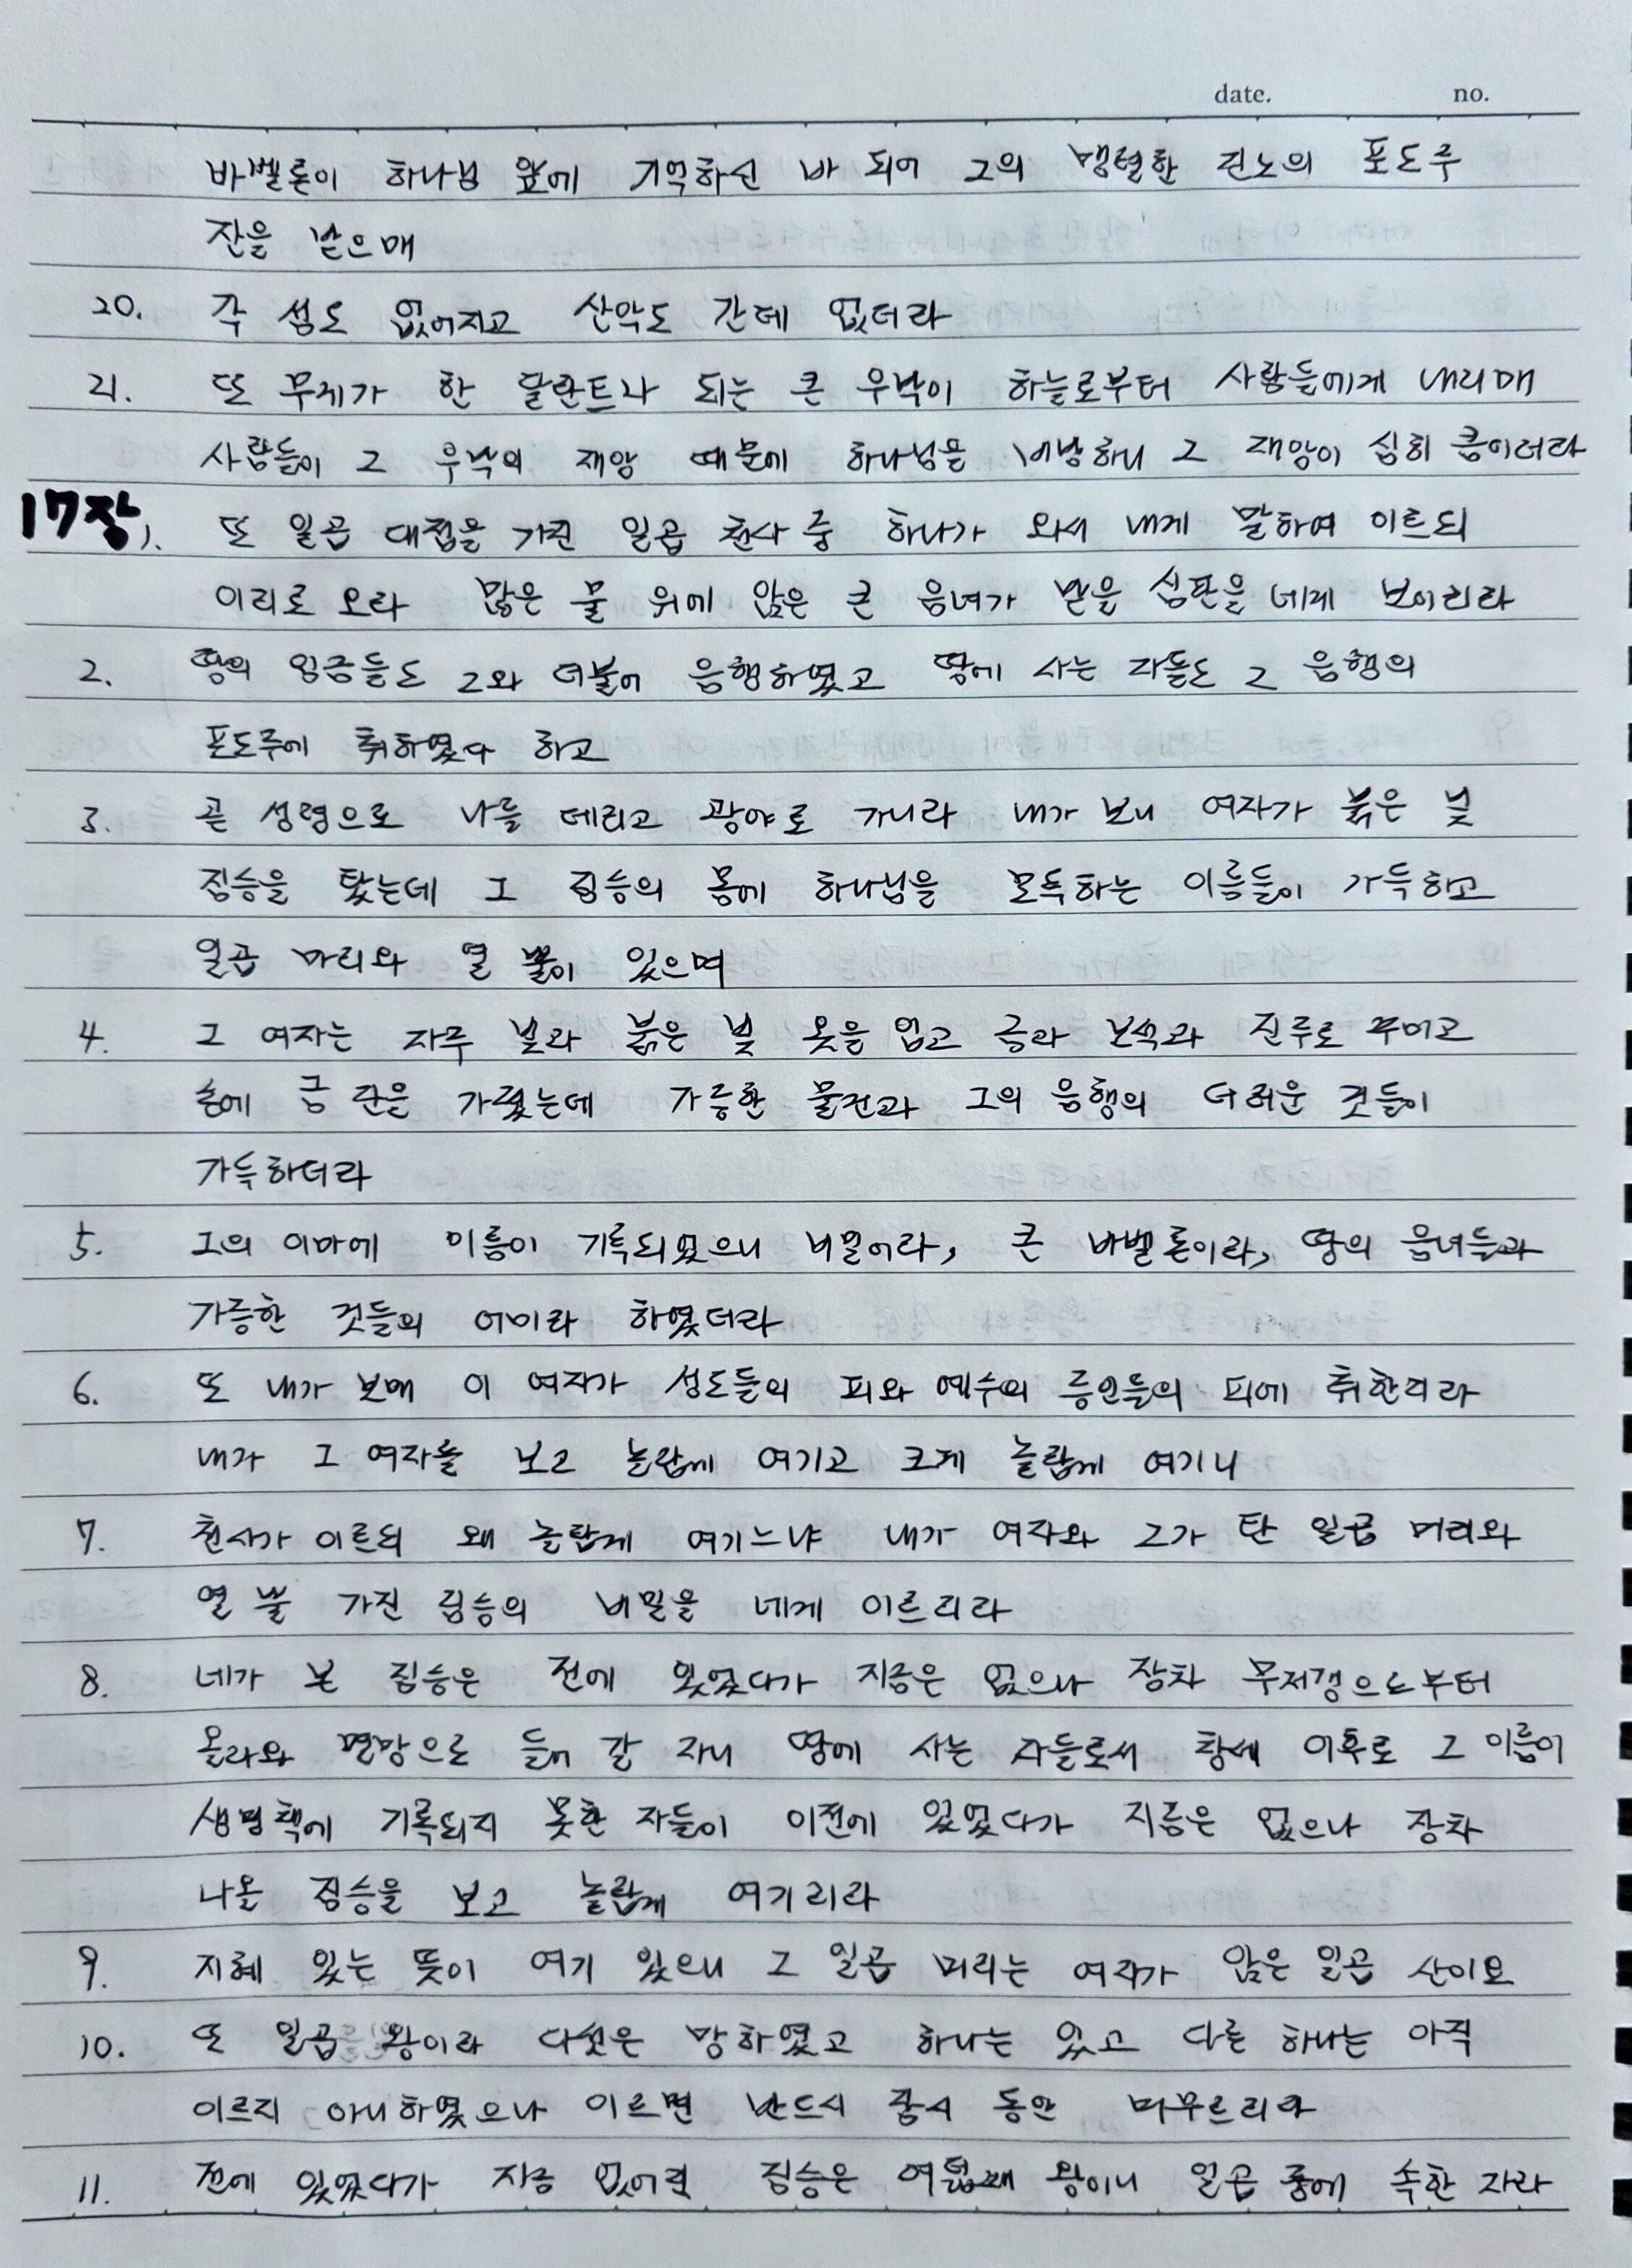 date. no.
바벨론이 하나님 앞에 기억하신 바 되어 그의 맹렬한 진노의 포도주
잔을 받으매
20. 각 섬도 없어지고 산악도 간데 없더라
21. 또 무게가 한 달란트나 되는 큰 우박이 하늘로부터 사람들에게 내리매
사람들이 그 우박의 재앙 때문에 하나님을 비방하니 그 재앙이 심히 큼이더라
17장 1. 또 일곱 대접을 가진 일곱 천사 중 하나가 와서 내게 말하여 이르되
이리로 오라 많은 물 위에 앉은 큰 음녀가 받을 심판을 네게 보이리라
2. 땅의 임금들도 그와 더불어 음행하였고 땅에 사는 자들도 그 음행의
포도주에 취하였다 하고
3. 곧 성령으로 나를 데리고 광야로 가니라 내가 보니 여자가 붉은 빛
짐승을 탔는데 그 짐승의 몸에 하나님을 모독하는 이름들이 가득하고
일곱 머리와 열 뿔이 있으며
4. 그 여자는 자주 빛과 붉은 빛 옷을 입고 금과 보석과 진주로 꾸미고
손에 금 잔을 가졌는데 가증한 물건과 그의 음행의 더러운 것들이
가득하더라
5. 그의 이마에 이름이 기록되었으니 비밀이라, 큰 바벨론이라, 땅의 음녀들과
가증한 것들의 어미라 하였더라
6. 또 내가 보매 이 여자가 성도들의 피와 예수의 증인들의 피에 취한지라
내가 그 여자를 보고 놀랍게 여기고 크게 놀랍게 여기니
7. 천사가 이르되 왜 놀랍게 여기느냐 내가 여자와 그가 탄 일곱 머리와
열 뿔 가진 짐승의 비밀을 네게 이르리라
8. 네가 본 짐승은 전에 있었다가 지금은 없으나 장차 무저갱으로부터
올라와 멸망으로 들어 갈 자니 땅에 사는 자들로서 창세 이후로 그 이름이
생명책에 기록되지 못한 자들이 이전에 있었다가 지금은 없으나 장차
나올 짐승을 보고 놀랍게 여기리라
9. 지혜 있는 뜻이 여기 있으니 그 일곱 머리는 여자가 앉은 일곱 산이요
10. 또 일곱 왕이라 다섯은 망하였고 하나는 있고 다른 하나는 아직
이르지 아니하였으나 이르면 반드시 잠시 동안 머무르리라
11. 전에 있었다가 지금 없어진 짐승은 여덟째 왕이니 일곱 중에 속한 자라